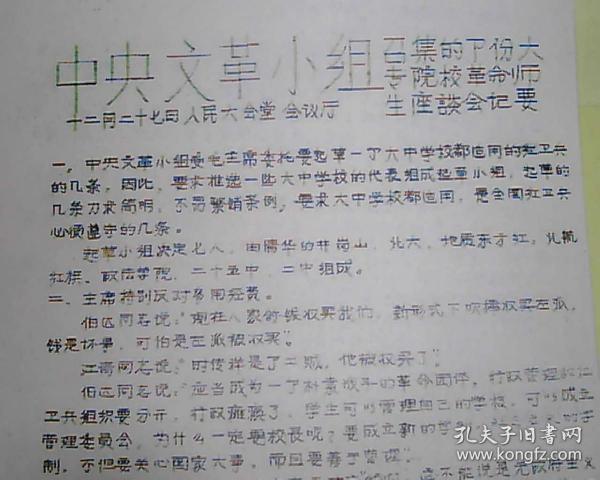 中央文革小组召集的下份大
专院校革命师
生座談会记要
十二月二十七日人民大会堂会议厅
一。中央文革小组受毛主席委托要起草一个大中学校都适用的红卫兵
的几条，因此，要求推选一些大中学校的代表组成起草小组，起草的
几条力求简明，不需繁锁条例，要求大中学校都适用，是全国红卫兵
必须遵守的几条。
起草小组决定七人，由清华的井岗山，北大，地质东方红，北航
红旗、政法学院，二十五中，二中组成。
二、主席特别反对多用经费。
伯达同志说："现在人家的钱收买我们，新形式下収播収买左派，
钱是坏景，可怕是左派被收买"。
江青同志说："时传祥是了工贼，他被收买了"。
伯达同志说："应当成为一个朴素战斗的革命团体，行政管理和红
卫兵组织要分开，行政瘫痪了，学生可以管理自己的学校，可以成立
管理委员会，为什么一定要校长呢？要成立新的学
制，不但要关心国家大事，而且要善于管理"。
不能说是无政府主义
孔夫子旧书网
www.kongfz.com